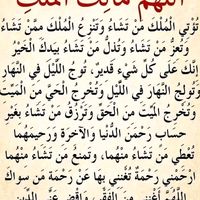 اللهم مالك الملك
تُؤتِي الْمُلْكَ مَنْ تَشَاءُ وَتَنْزِعُ الْمُلْكَ مِمَّنْ تَشَاءُ
وَتُعِزُّ مَنْ تَشَاءُ وَتُذِلُّ مَنْ تَشَاءُ بِيَدِكَ الْخَيْرُ
إِنَّكَ عَلَى كُلِّ شَيْءٍ قَدِيرٌ، تُوِجُ اللَّيْلَ فِي النَّهَارِ
وَتُولِجُ النَّهَارَ فِي اللَّيْلِ وَتُخْرِجُ الْحَيَّ مِنَ الْمَيِّتِ
وَتُخْرِجُ الْمَيِّتَ مِنَ الْحَيِّ وَتَرْزُقُ مَنْ تَشَاءُ بِغَيْرِ
حِسَابٍ رَحْمَنَ الدُّنْيَا وَالآخِرَةِ وَرَحِيمَهُمَا
تُعْطِي مَنْ تَشَاءُ مِنْهُمَا، وَتَمْنَعُ مَنْ تَشَاءُ مِنْهُمَا
ارْحَمْنِي رَحْمَةً تُغْنِنِي بِهَا عَنْ رَحْمَةِ مَنْ سِوَاكَ
اللَّهُمَّ أَغْنِنِي مِنَ الْفَقْرِ، وَاقْضِ عَنِّي الدَّيْنَ